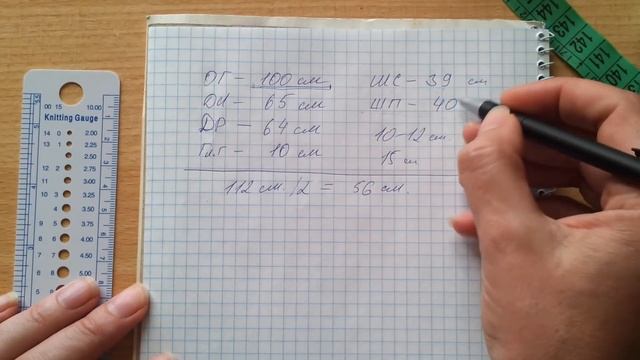 ОГ – 100 см
ДИ – 65 см
ДР – 64 см
Гл.г – 10 см
ШС – 39 см
ШП – 40
10–12 см.
15 см
112 см./2 = 56 см.
Knitting Gauge
00 15 10.00
14 0 2.00
13 1 2.25
2 2.50
12 2.75
11 3 3.00
10 3.25
4 3.50
9 3.75
8 5 4.00
7 4.50
6 6 5.00
5 5.50
144
143
142
141
140